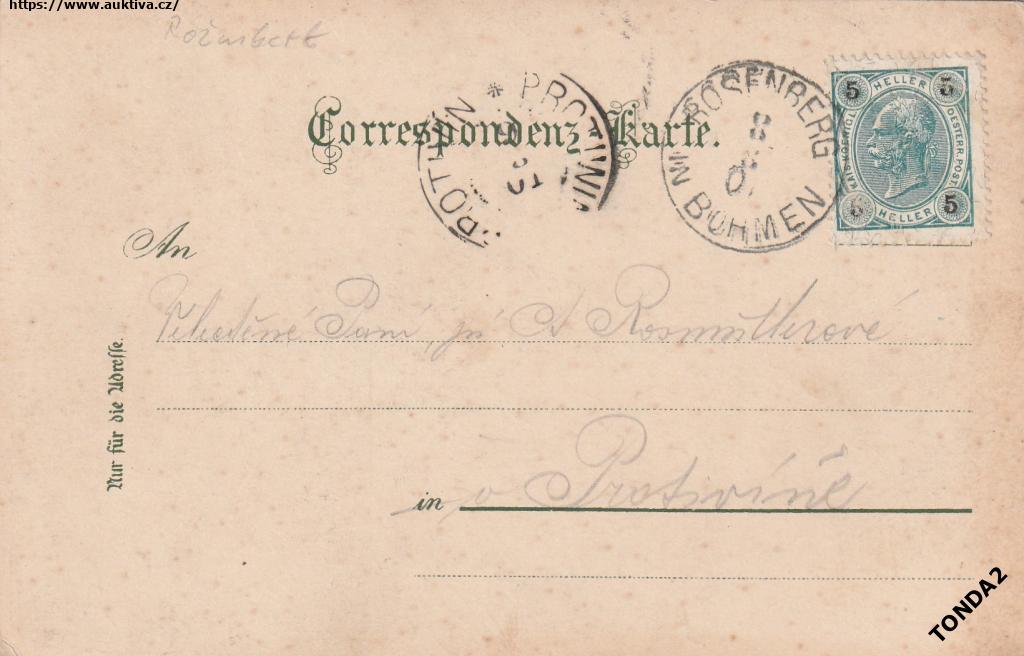 https://www.auktiva.cz/
Rožmberk
Correspondenz-Karte.
PROTIVIN * PROTIWIN
ROSENBERG IN BÖHMEN
5 HELLER 5
KAIS. KOENIGL. OESTERR. POST.
5 HELLER 5
An
Paní, A. Rosmüllerové
Nur für die Adresse.
in v Protivíně
TONDA2